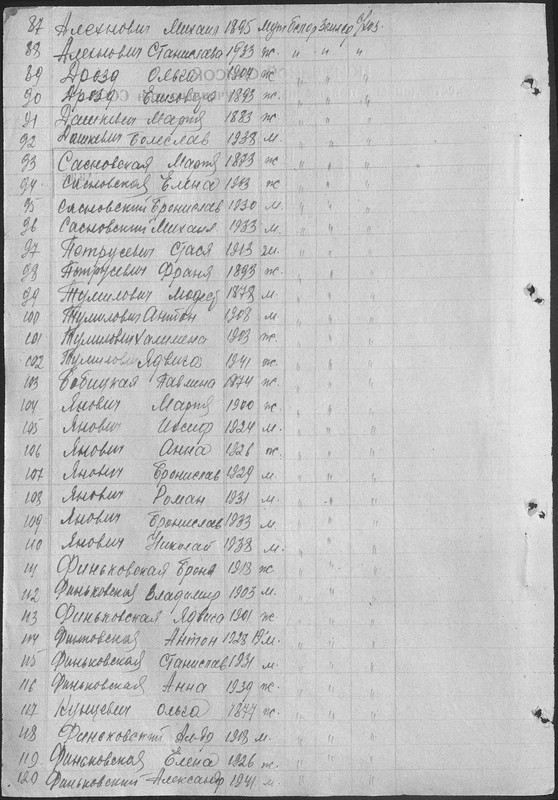 87 Алехнович Михаил 1895 муж белор Земер. Каз.
88 Алехнович Станислава 1933 ж. " " "
89 Дрозд Ольга 1904 ж " " "
90 Дрозд Елизовета 1893 ж. " " "
91 Дашкевич Мария 1883 ж " " "
92 Дашкевич Болеслав 1938 м. " " "
93 Сасновская Мария 1873 ж " " "
94 Сасновская Елена 1903 ж. " " "
95 Сасновский Бронислав 1930 м. " " "
96 Сасновский Михаил 1933 м. " " "
97 Петрусевич Стася 1913 ж. " " "
98 Петрусевич Франя 1893 ж. " " "
99 Тумилович 1878 м. " " "
100 Тумилович Антон 1908 м. " " "
101 Тумилович Галимена 1903 ж. " " "
102 Тумилович Ядвига 1941 ж. " " "
103 Бобицкая Павлина 1874 ж. " " "
104 Янович Мария 1900 ж " " "
105 Янович Иосиф 1924 м. " " "
106 Янович Анна 1926 ж. " " "
107 Янович Бронислав 1929 м. " " "
108 Янович Роман 1931 м. " " "
109 Янович Бронислав 1933 м. " " "
110 Янович Николай 1938 м. " " "
111 Финьковская Броня 1913 ж " " "
112 Финьковская Владимир 1903 м. " " "
113 Финьковская Ядвига 1901 ж " " "
114 Финьковская Антон 1928 м. " " "
115 Финьковская Станислав 1931 м. " " "
116 Финьковская Анна 1939 ж. " " "
117 Кунцевич Ольга 1877 ж. " " "
118 Финьковский 1913 м. " " "
119 Финьковская Елена 1926 ж. " " "
120 Финьковский Александр 1941 м. " " "